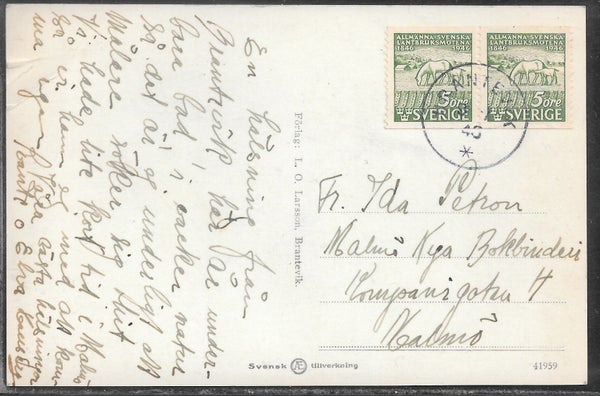 En
hälsning från
Brantevik, här är under-
bara bad i vacker natur
så det är ej underligt att
Målare söker sig hit
hade lite kort tid i Malmö
med att kom-
ma igen
bästa hälsningar
Förlag: L. O. Larsson, Brantevik.
ALLMÄNNA SVENSKA
LANTBRUKSMÖTENA
1846 1946
5 ÖRE
SVERIGE
ALLMÄNNA SVENSKA
LANTBRUKSMÖTENA
1846 1946
5 ÖRE
SVERIGE
Fr. Ida Petron
Malmö Nya Bokbinderi
Kompanigatan 4
Malmö
Svensk tillverkning
41959